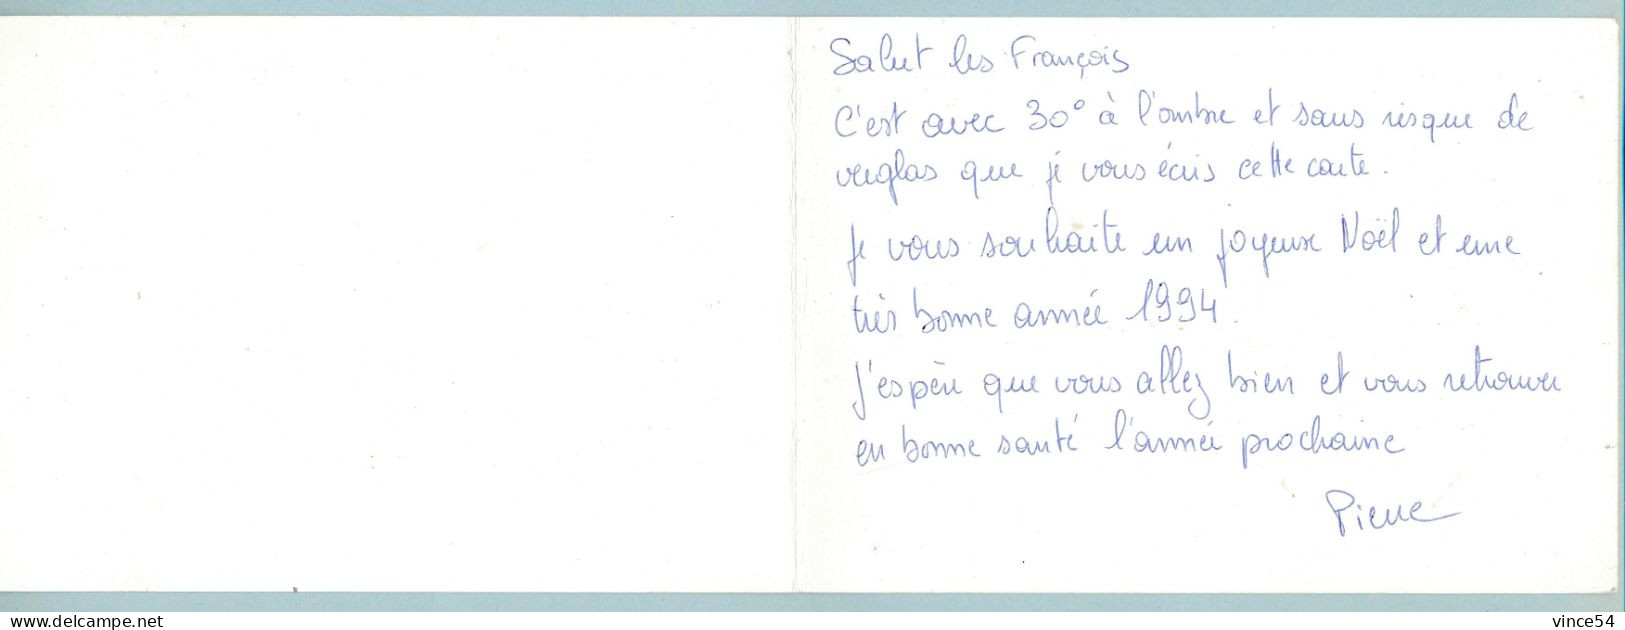 Salut les François
C'est avec 30° à l'ombre et sans risque de
verglas que je vous écris cette carte.
Je vous souhaite un joyeux Noël et une
très bonne année 1994.
J'espère que vous allez bien et vous retrouver
en bonne santé l'année prochaine
Pierre
www.delcampe.net
vince54